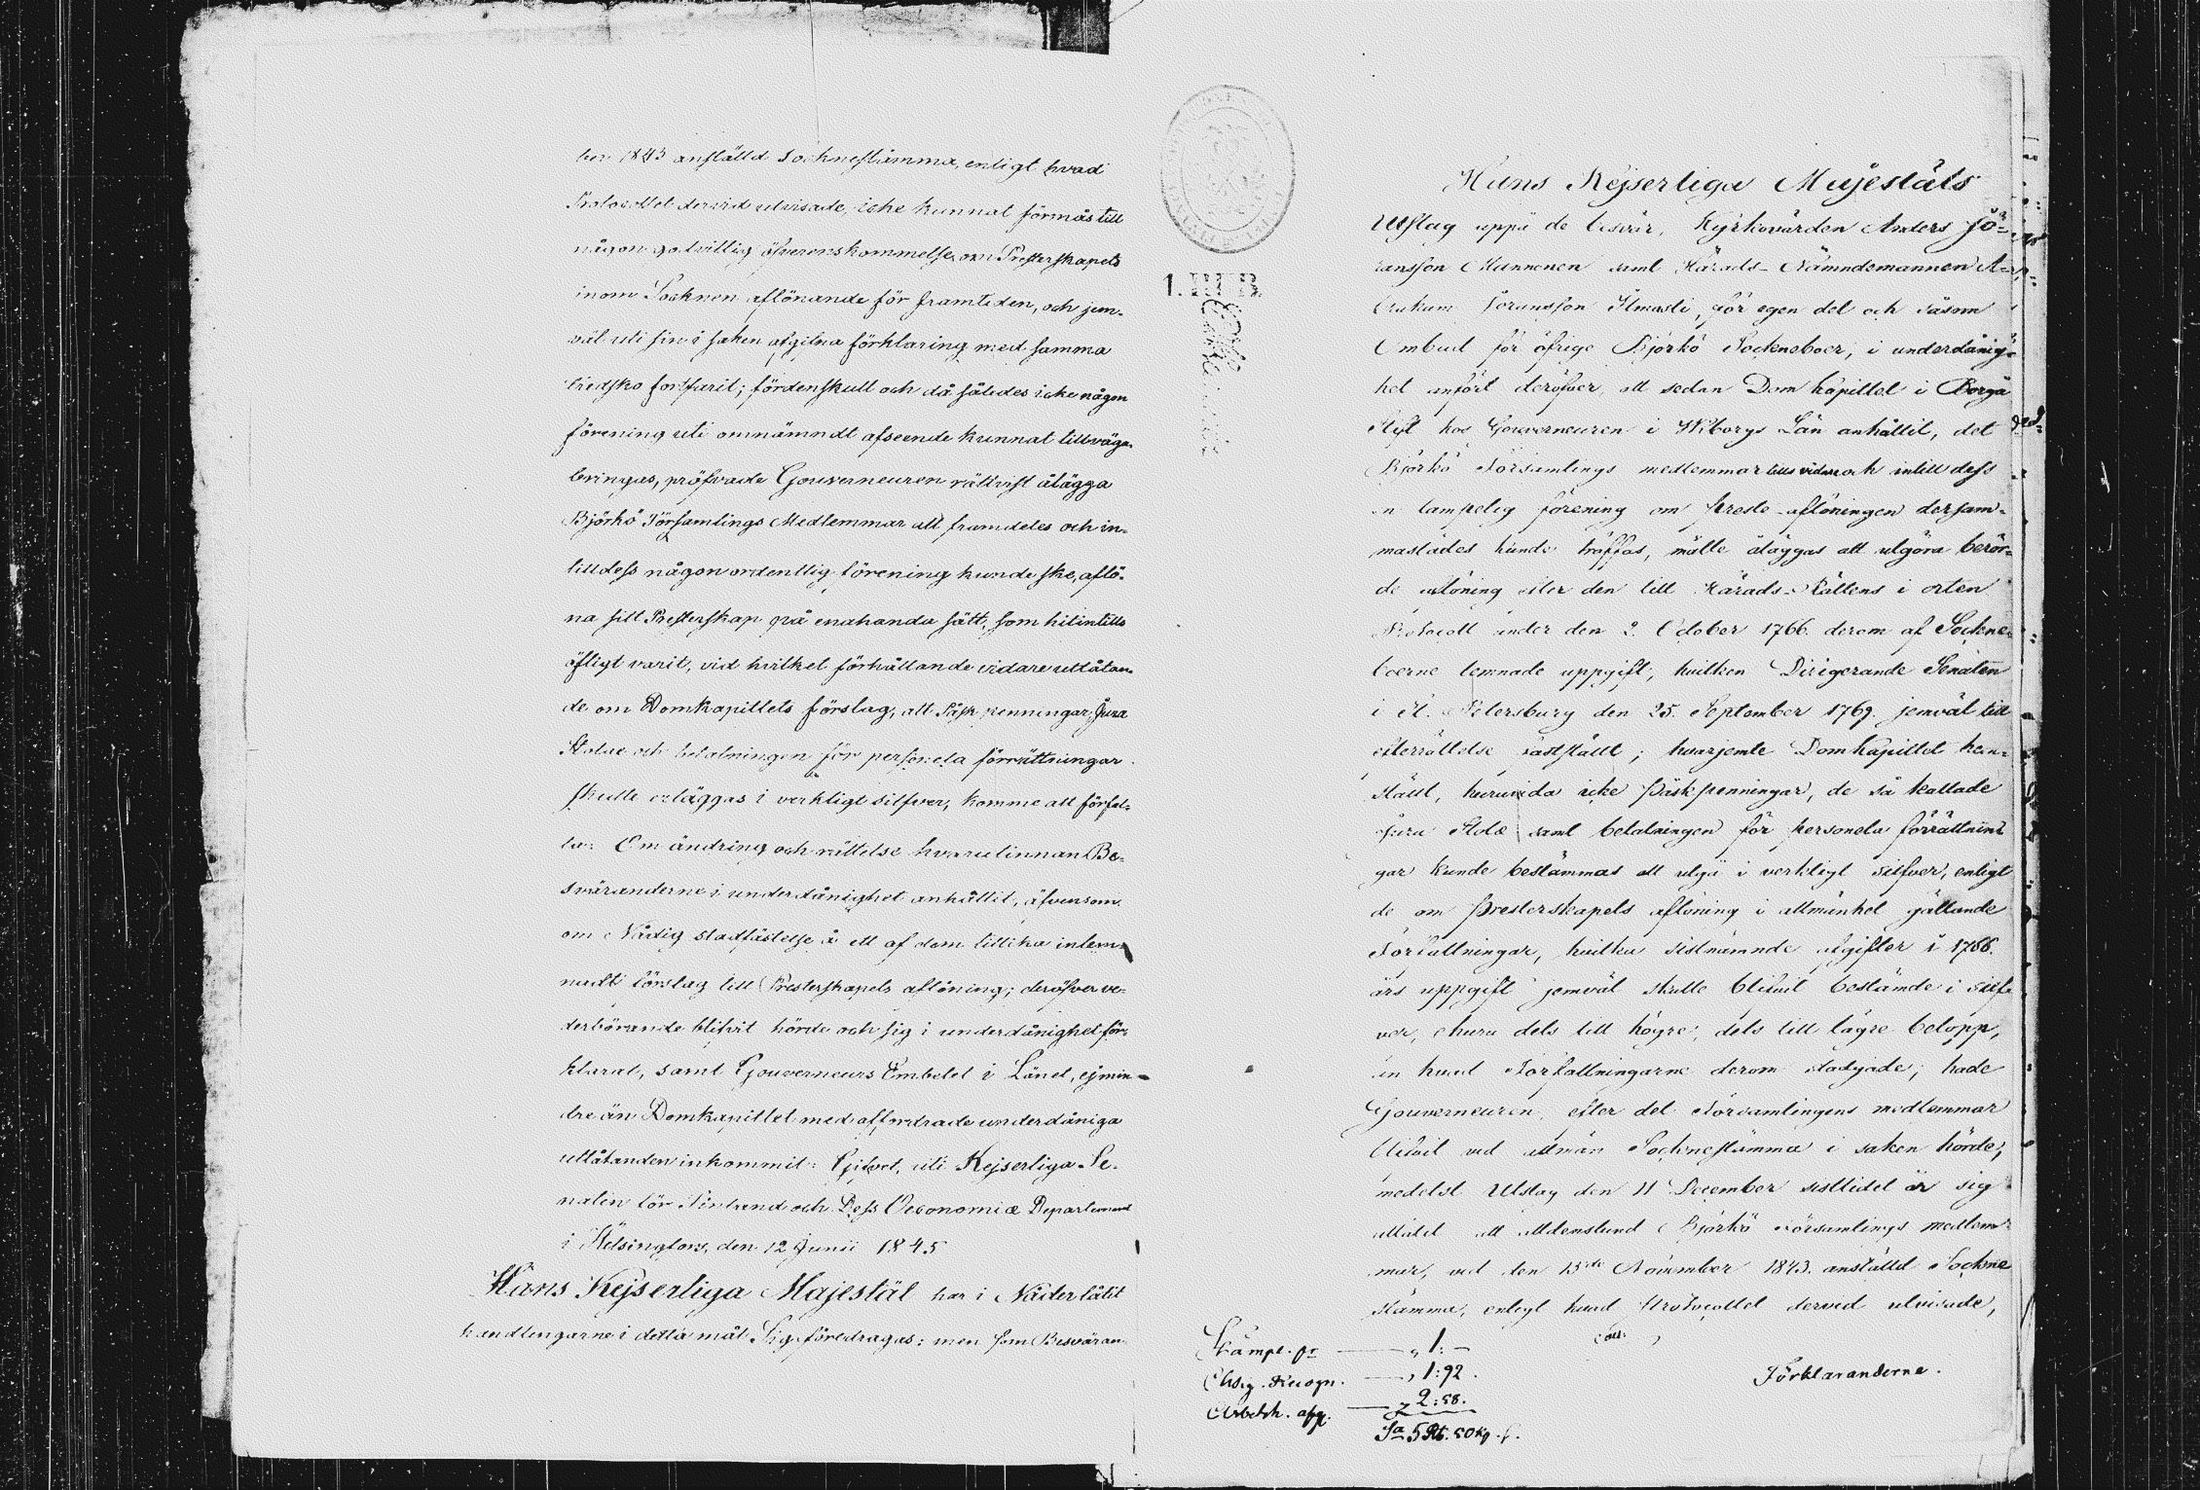 ber 1843 anställd Sochnestämma, enligt hvad
Protocollet dervid utvisade, icke kunnat förmås till
någon godvillig öfverenskommelse om Presterskapets
inom Socknen aflönande för framtiden, och jem-
väl uti sin i saken afgifna förklaring med samma
tredsko fortfarit; fördenskull och då således icke någon
förening uti omnämndt afseende kunnat tillväga-
bringas, pröfvade Gouverneuren rättvist ålägga
Björkö Församlings Medlemmar att framdeles och in-
tilldess någon ordentlig förening kunde ske, aflö-
na sitt Presterskap på enahanda sätt, som hitintills
öfligt varit, vid hvilket förhållande vidare utlåtan-
de om Domkapitlets förslag, att Påsk penningar, Jura
Stolæ och betalningen för personela förrättningar
skulle erläggas i verkligt silfver, komme att förfal-
la: Om ändring och rättelse hvarutinnan Be-
sväranderne i underdånighet anhållit, äfvensom
om Nådig stadfästelse å ett af dem tillika inlem-
nadt förslag till Presterskapets aflöning; deröfver ve-
derbörande blifvit hörde och sig i underdånighet för-
klarat, samt Gouverneurs Embetet i Länet, ej min-
dre än Domkapitlet med affordrade underdåniga
utlåtanden inkommit: Gifvet, uti Kejserliga Se-
naten för Finland och Dess Oeconomiæ Departement
i Helsingfors, den 12 Junii 1845
Hans Kejserliga Majestät har i Nåder låtit
handlingarne i detta mål Sig föredragas: men som Besväran-
1. III B.
Hans Kejserliga Majestäts
Utslag uppå de besvär, Kyrkovärden Anders Jö-
ransson Mannonen samt Härads-Nämndemannen A-
braham Göransson Ilmasti, för egen del och såsom
Ombud för öfrige Björkö Sockneboer, i underdånig-
het anfört deröfver, att sedan Domkapitlet i Borgå
Stift hos Gouverneuren i Wiborgs Län anhållit, det
Björkö Församlings medlemmar tills vidare och intill dess
en lampelig förening om Preste-aflöningen dersam-
mastädes hunde träffas, måtte åläggas att utgöra berör-
de aflöning efter den till Härads-Rättens i orten
Protocoll under den 2. October 1766. derom af Sockne-
boerne lemnade uppgift, hvilken Dirigerande Senaten
i St. Petersburg den 25. September 1769. jemväl till
efterrättelse fastställt; hvarjemte Domkapitlet hem-
ställt, huruvida icke Påskpenningar, de så kallade
Jura Stolæ samt betalningen för personela förrättnin-
gar kunde bestämmas att utgå i verkligt silfver, enligt
de om Presterskapets aflöning i allmänhet gällande
Författningar, hvilka sistnämnde afgifter i 1766.
års uppgift jemväl skulle blifvit bestämde i silf-
ver, ehuru dels till högre, dels till lägre belopp,
än hvad Författningarne derom stadgade; hade
Gouverneuren, efter det Församlingens medlemmar
blifvit vid allmän Socknestämma i saken hörde,
medelst Utslag den 11 December sistlidet år sig
utlåtit att alldenstund Björkö Församlings medlem-
mar, vid den 13de November 1843. anställd Sockne
stämma, enligt hvad Protocollet dervid utvisade,
Förklaranderne.
Stämpl. pr — „ 1: —
Chsig. Recogn. — „ 1:92.
Arbetsh. afg. — „ 2:58.
Sa 5 Rb. 50 kop. s.